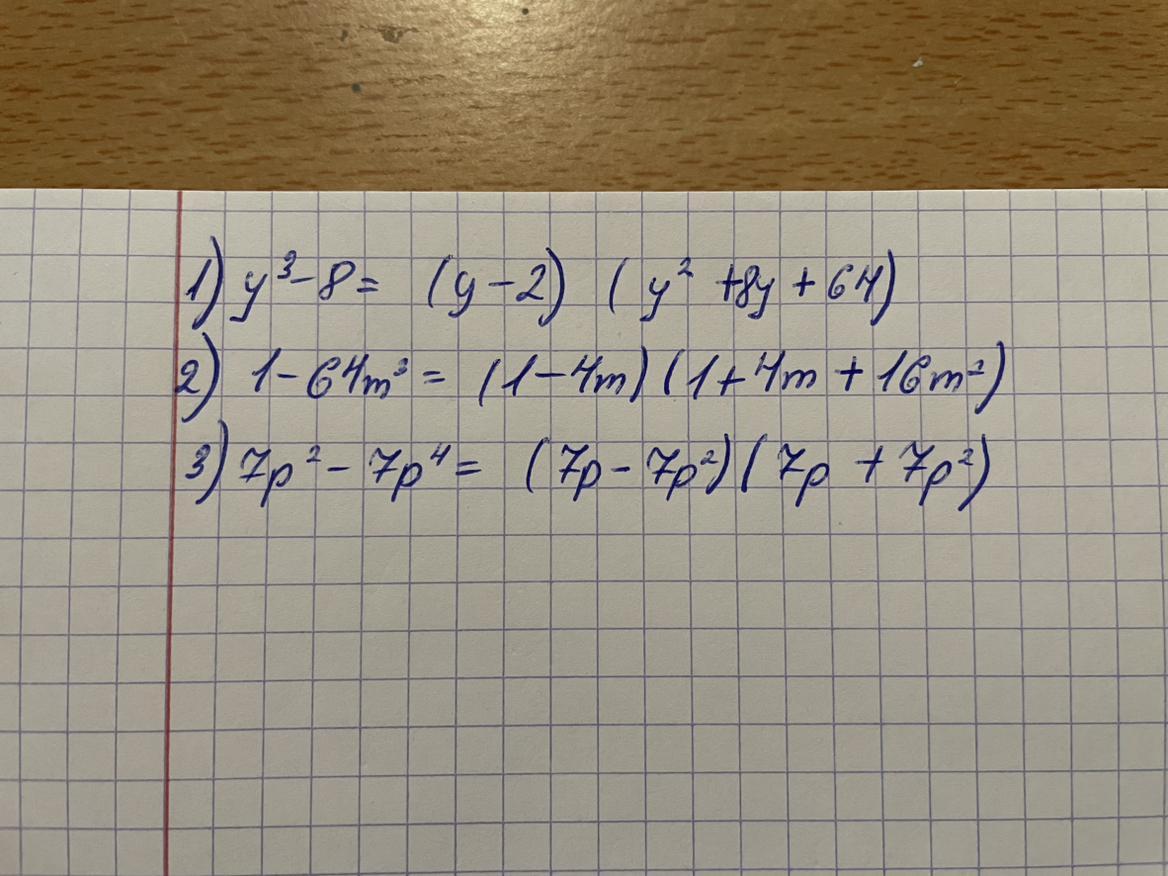 1) y³-8= (y-2) (y² +8y+64)
2) 1-64m³= (1-4m)(1+4m+16m²)
3) 7p²-7p⁴= (7p-7p²)(7p+7p²)